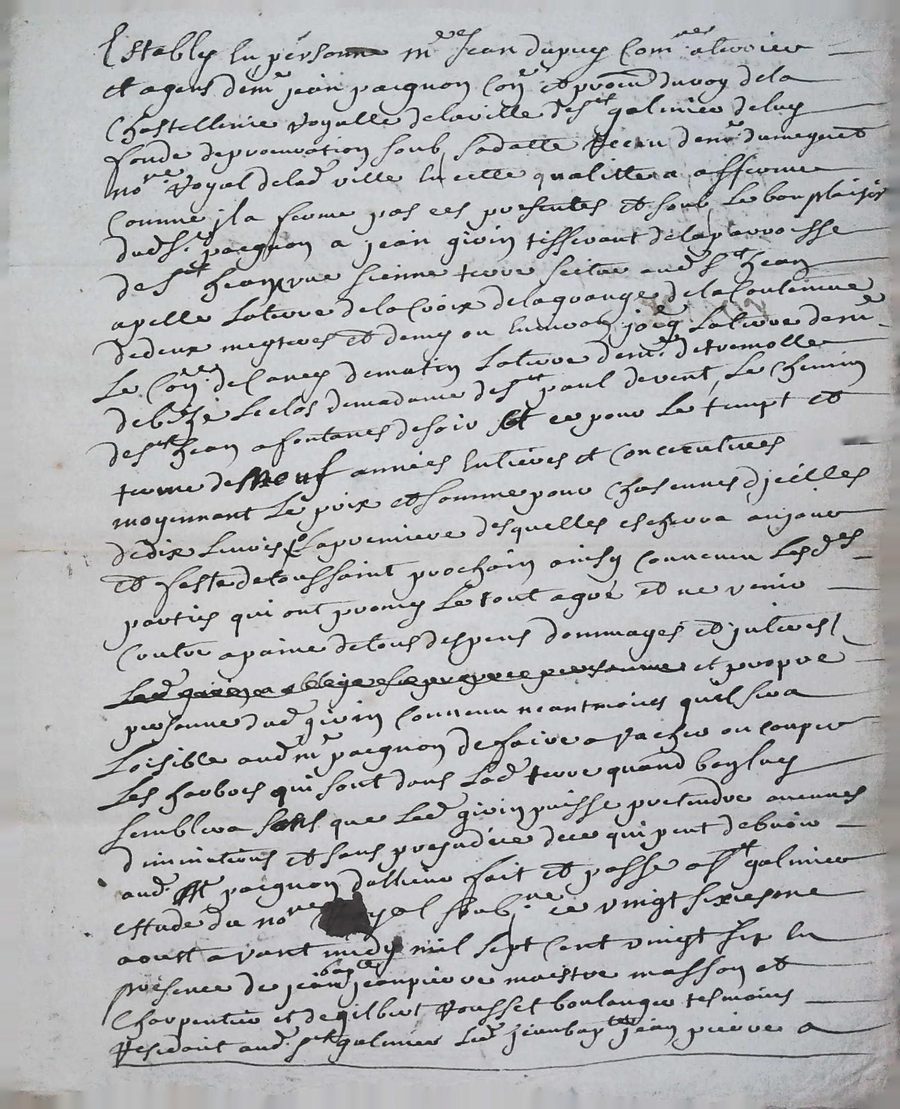 Establey en personne m^re Jean dupuy Com^re alterrier
et agent de m^r jean paignon Con^er et procu^r du roy de la
Chastellenie royalle de la ville de s^t galmier de luy
fonde de procuration soub sa datte receu de m^e dumeynet
no^re royal de lad^e ville en celle qualitte a afferme
Comme jl a ferme pas ces presentes et soub le bon plaisir
dud s^r paignon a jean givin tisserant de la parroisse
de s^t hean une sienne terre scitue aud s^t hean
apelle La terre de la Croix de la grange de la Contenue
de deux meyteres et demy ou environ joig^t La terre de m^r
Le Con^er de Caney de matin La terre de m^r de tremolles
de Le clos de madame de s^t paul de vent, Le chemin
de s^t hean a fontanes de soir Et ce pour Le tempt et
terme de Neuf années entieres et Consecutives
moyennant Le prix et somme pour chasennes djcelles
de dix Livres La premiere desquelles eschera aujour
et feste de toussaint prochain ainsy Convenu Les d^es
parties qui ont promis Le tout agré et ne venir
Contre a paine de tous despens dommages et jnterest
et propre
personne dud givin Convenu neantmoins quil sera
Loisible aud m^r paignon de faire arracher ou couper
Les harbres qui sont dans Lad^e terre quand bon luy
semblera sans que Led givin puisse pretendre aucunes
diminutions et sans prejudice de ce qui peut debvoir
aud paignon dallieur fait et passe a s^t galmier
estude du no^re soub^ne ce vingt sixiesme
aoust avant midy mil sept Cent vingt six en
presence de jean bap^te jean pierre maistre masson et
Charpentier et de gilbert rousset boulanger tesmoins
residant aud s^t galmier Led jean bap^te jean pierre a